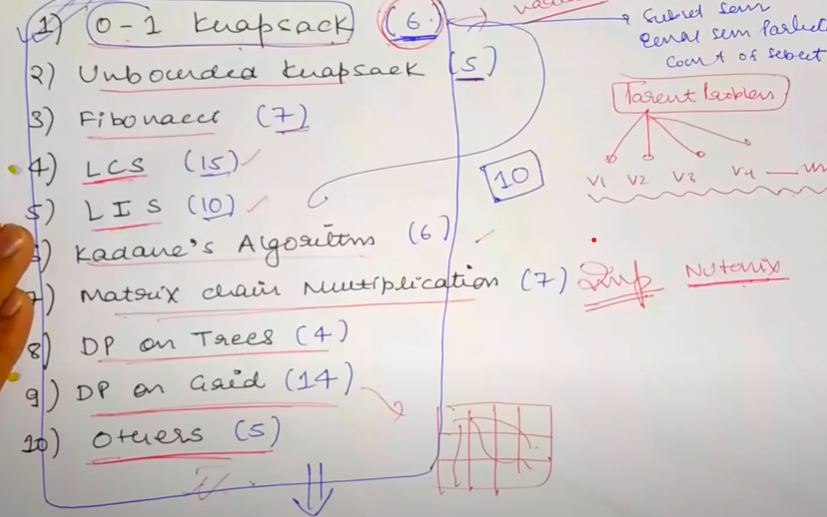 1) 0-1 Knapsack (6)
2) Unbounded Knapsack (5)
3) Fibonacci (7)
4) LCS (15)
5) LIS (10)
6) Kadane's Algorithm (6)
7) Matrix chain Multiplication (7) Imp Nutanix
8) DP on Trees (4)
9) DP on Grid (14)
10) Others (5)
Subset sum
Equal sum Partiti
Count of subset
Parent Problem
V1 V2 V3 V4
10